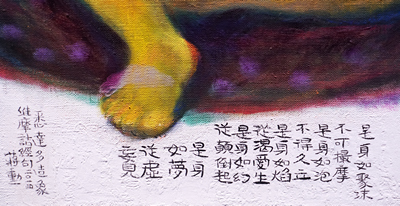 是身如聚沫
不可撮摩
是身如泡
不得久立
是身如焰
從渴愛生
是身如幻
從顛倒起
是身
如夢
從虛
妄見
悉達多造象
維摩詰經句
蔣勳